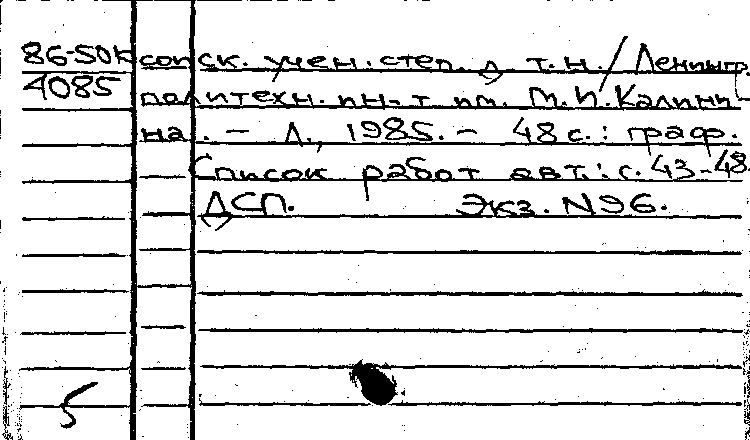 86-50к соиск. учен. степ. д. т.н. / Ленингр.
4085 политехн. ин-т им. М.И.Калини-
на. - Л., 1985. - 48 с.: граф.
Список работ авт.: с. 43-48.
ДСП. Экз. №96.
5